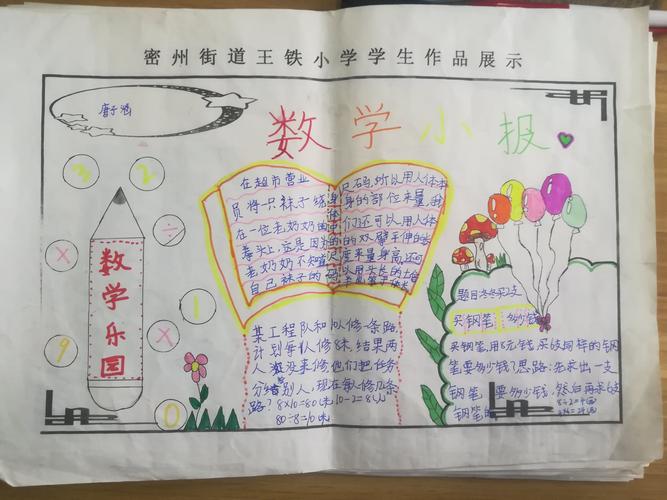 密州街道王铁小学学生作品展示
数学小报
3
2
÷
×
×
1
9
0
数学乐园
在超市营业
员将只袜子绕
在一位老奶奶的
拳头上,这是因为
老奶奶不知道
自己袜子的
尺码,所以用人体本
身的部位来量,我
们还可以用人体
的双臂平伸的长
度来量身高,还可
以用头长的
某工程队和10人修一条路
计划每人修8米,结果两
人没来修他们把任务
分给别人,现在每人修几条
路?8×10=80米 10-2=8人
80÷8=10米
题目冬冬买2支
买钢笔 多少钱
买钢笔,用8元钱,买6支同样的钢
笔要多少钱?思路:先求出一支
钢笔要多少钱,然后再求6支
钢笔的
8÷2=4元